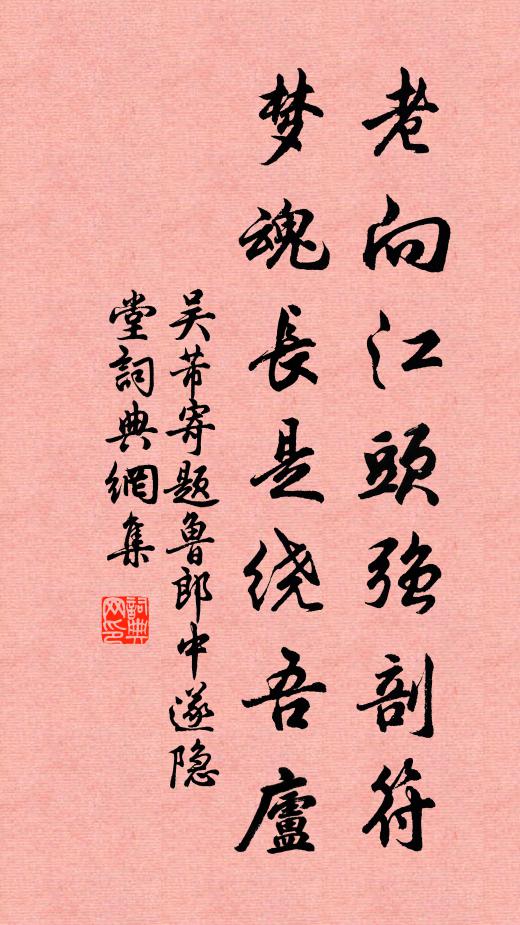 老向江頭強剖符
梦魂長是绕吾廬
吴芾寄题鲁郎中遂隐
堂詞典網集
詞典
网印